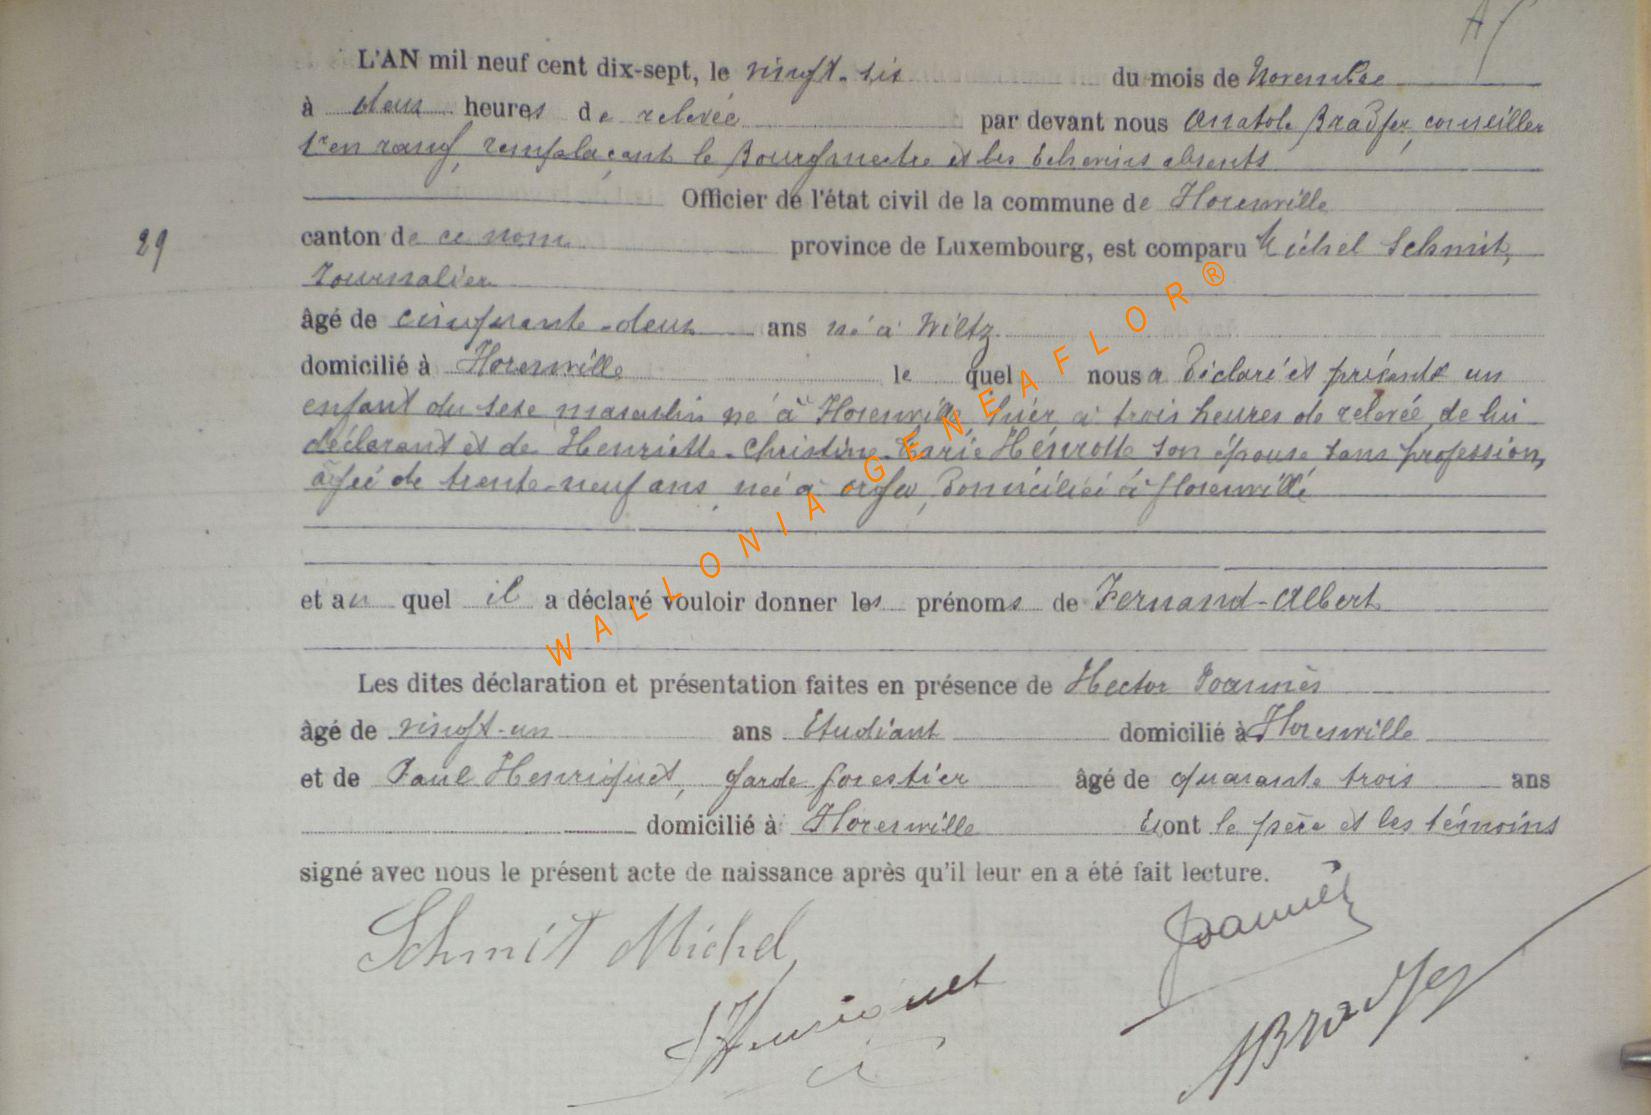 L'AN mil neuf cent dix-sept, le vingt-six du mois de Novembre
à deux heures de relevée par devant nous Anatole Bradfer, conseiller
1er en rang, remplaçant le Bourgmestre et les Echevins absents
Officier de l'état civil de la commune de Florenville
29
canton de ce nom province de Luxembourg, est comparu Michel Schmit,
Journalier
âgé de cinquante-deux ans né à Wiltz
domicilié à Florenville le quel nous a déclaré et présenté un
enfant du sexe masculin né à Florenville, hier à trois heures de relevée, de lui
déclarant et de Henriette-Christine-Marie Henrotte son épouse sans profession,
âgée de trente-neuf ans, née à Orgeo, domiciliée à Florenville
et au quel il a déclaré vouloir donner les prénoms de Fernand-Albert
Les dites déclaration et présentation faites en présence de Hector Joannès
âgé de vingt-un ans Etudiant domicilié à Florenville
et de Paul Henriquet, garde forestier âgé de quarante trois ans
domicilié à Florenville Et ont le père et les témoins
signé avec nous le présent acte de naissance après qu'il leur en a été fait lecture.
Schmit Michel
Joannès
Henriquet
ABradfer
WALLONIA GENEAFLOR ®